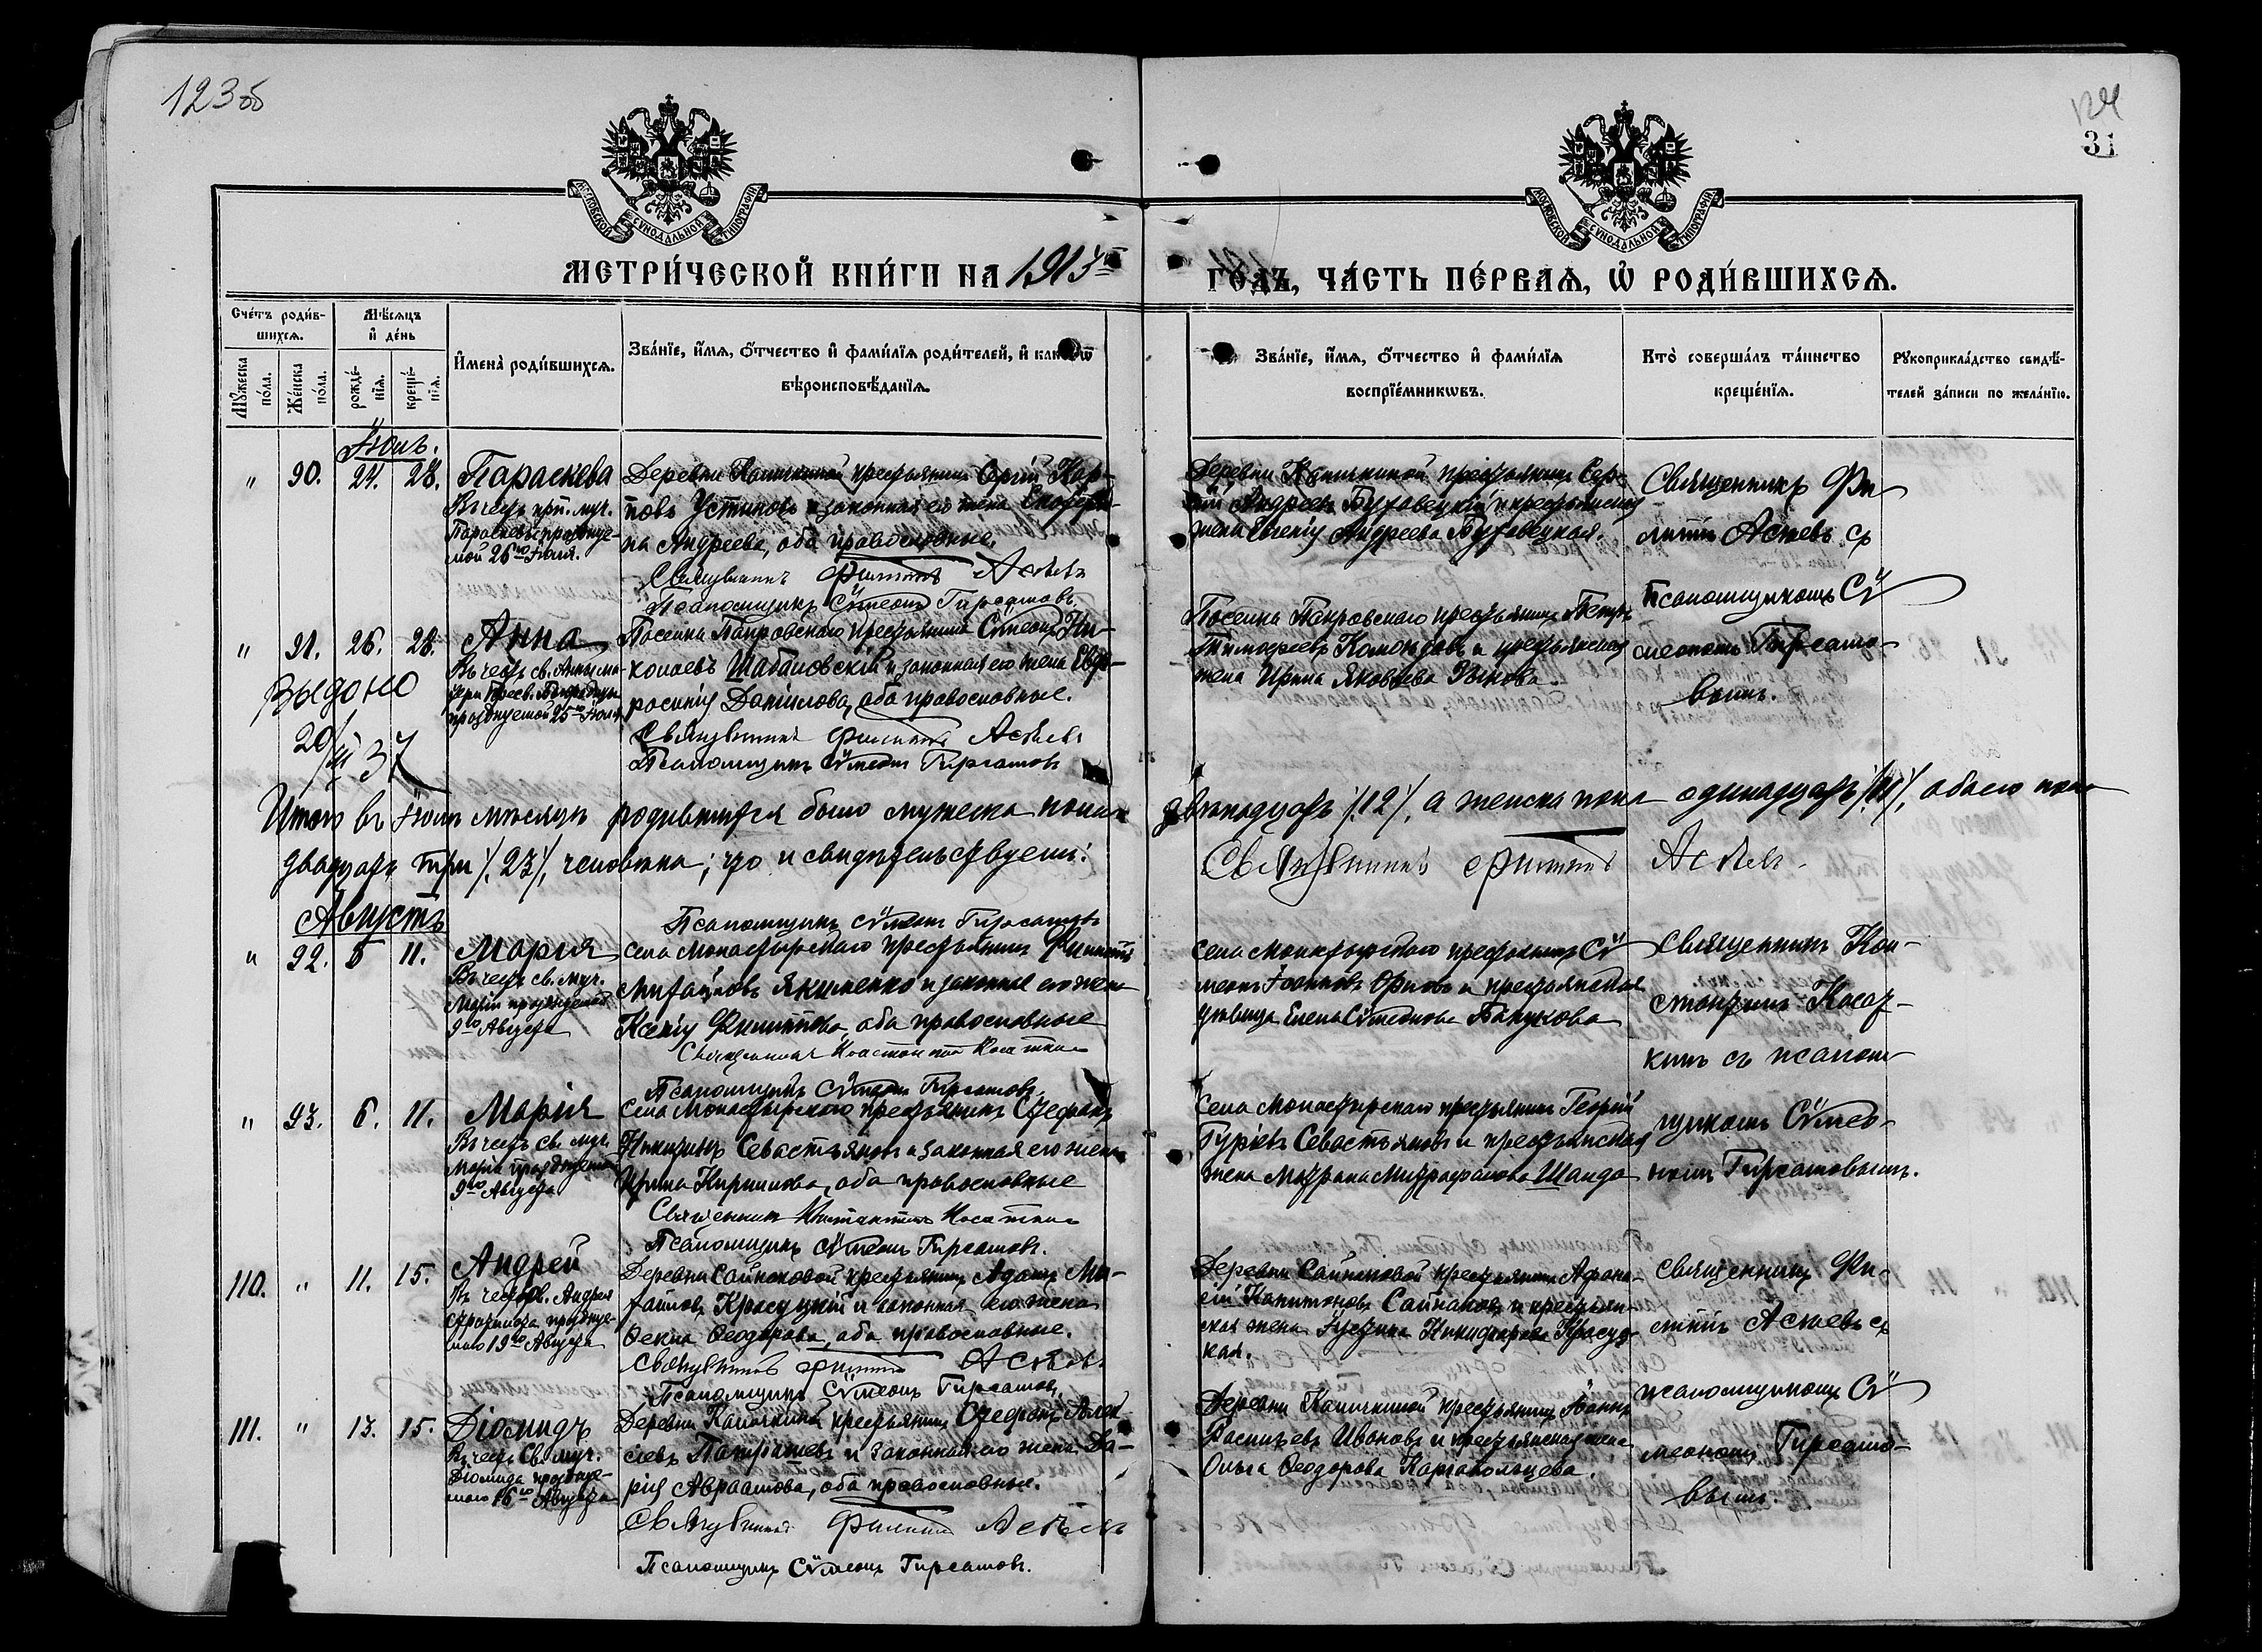 123об
124
31
МОСКОВСКОЙ СѴНОДАЛЬНОЙ ТИПОГРАФІИ
МОСКОВСКОЙ СѴНОДАЛЬНОЙ ТИПОГРАФІИ
МЕТРИ́ЧЕСКОЙ КНИ́ГИ НА 1913
ГОДЪ, ЧА́СТЬ ПЕ́РВАѦ, Ѡ҆ РОДИ́ВШИХСѦ.
Сче́тъ роди́в-
шихсѧ.
Мꙋ́жеска по́ла.
Же́нска по́ла.
Мѣ́сѧцъ и҆ де́нь
рожде́-нїѧ.
креще́-нїѧ.
И҆мена̀ роди́вшихсѧ.
Зва́нїе, и҆́мѧ, ѻ҆́тчество и҆ фами́лїѧ роди́телей, и҆
вѣроисповѣ́данїѧ.
Зва́нїе, и҆́мѧ, ѻ҆́тчество и҆ фами́лїѧ
воспрїе́мникѡвъ.
Кто̀ соверша́лъ та́инство
креще́нїѧ.
Рꙋкоприкла́дство свидѣ́-
телей за́писи по жела́нїю.
Іюль.
" 90. 24. 28. Параскева
Въ честь прп. муч.
Параскевы празднуе-
мой 26го Іюля.
Деревни Калычкиной крестьянинъ Сергій Кар-
повъ Устиновъ и законная его жена Екатери-
на Андреева, оба православные.
Священникъ Филиппъ Асѣевъ
Псаломщикъ Сѵмеонъ Гирсамовъ.
крестьянинъ Сер-
гій Андреевъ Бутовецкій и крестьянская
жена Евгенія Андреева Бутовецкая.
Священникъ Фи-
липпъ Асѣевъ съ
псаломщикомъ Сѵ-
меономъ Гирсамо-
вымъ.
" 91. 26. 28. Анна
Въ честь св. Анны ма-
тери Пресв. Богородицы
празднуемой 25го Іюля
Поселка Покровскаго крестьянинъ Сѵмеонъ Ни-
колаевъ Шабановскій и законная его жена Евф-
росинія Данилова, оба православные.
Священникъ Филиппъ Асѣевъ
Псаломщикъ Сѵмеонъ Гирсамовъ
Поселка Покровскаго крестьянинъ Петръ
Тимофеевъ и крестьянская
жена Ирина Яковлева Рыкова.
Выдано
20/II 37
Итого въ Іюлѣ мѣсяцѣ родившихся было мужеска пола двѣнадцать /12/, а женска пола одинадцать /11/, обоего пола
двадцать три /23/, человѣка; что и свидѣтельствуемъ:
Священникъ Филиппъ Асѣевъ
Псаломщикъ Сѵмеонъ Гирсамовъ
Августъ
" 92. 5 11. Марія
Въ честь св. муч.
Маріи празднуемой
9го Августа
Села Монастырскаго крестьянинъ Филиппъ
Михайловъ Якименко и законная его жена
Ксенія Филиппова, оба православные
Священникъ Константинъ Косаткинъ
Псаломщикъ Сѵмеонъ Гирсамовъ.
Села Монастырскаго крестьянинъ Сѵ-
меонъ Іоанновъ Орловъ и крестьянская
дѣвица Елена Сѵмеонова
Священникъ Кон-
стантинъ Косат-
кинъ съ псалом-
щикомъ Сѵмео-
номъ Гирсамовымъ.
" 93. 6. 11. Марія
Въ честь св. муч.
Маріи празднуемой
9го Августа
Села Монастырскаго крестьянинъ Стефанъ
Никитинъ Севастьяновъ и законная его жена
Ирина Кириллова, оба православные
Священникъ Константинъ Косаткинъ
Псаломщикъ Сѵмеонъ Гирсамовъ.
Села Монастырскаго крестьянинъ Георгій
Гуріевъ Севастьяновъ и крестьянская
жена Матрона Митрофанова Шандо
110. " 11. 15. Андрей
Въ честь св. Андрея
Стратилата празднуе-
маго 19го Августа
Деревни Сайнаковой крестьянинъ Адамъ Ми-
хайловъ Красуцкій и законная его жена
Ѳекла Ѳеодорова, оба православные.
Священникъ Филиппъ Асѣевъ
Псаломщикъ Сѵмеонъ Гирсамовъ.
Деревни Сайнаковой крестьянинъ Афана-
сій Капитоновъ Сайнаковъ и крестьян-
ская жена Іустина Никифорова Красуц-
кая.
Священникъ Фи-
липпъ Асѣевъ съ
псаломщикомъ Сѵ-
меономъ Гирсамо-
вымъ.
111. " 13. 15. Діомидъ
Въ честь Св. муч.
Діомида празднуе-
маго 16го Августа
Деревни Калычкиной крестьянинъ Стефанъ Алек-
сѣевъ и законная его жена Да-
рія Авраамова, оба православные.
Священникъ Филиппъ Асѣевъ
Псаломщикъ Сѵмеонъ Гирсамовъ.
Деревни Калычкиной крестьянинъ Іоаннъ
Ивановъ и крестьянская жена
Ольга Ѳеодорова Каргапольцева.